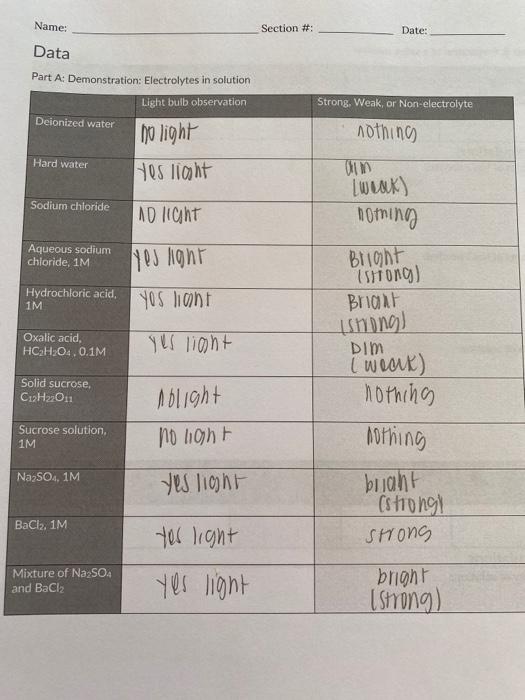 Name: Section #: Date:
Data
Part A: Demonstration: Electrolytes in solution
Light bulb observation Strong, Weak, or Non-electrolyte
Deionized water no light nothing
Hard water yes light dim
(weak)
Sodium chloride no light nothing
Aqueous sodium
chloride, 1M yes light Bright
(strong)
Hydrochloric acid,
1M yes light Bright
(strong)
Oxalic acid,
HC₂H₂O₄, 0.1M yes light DIM
(weak)
Solid sucrose,
C₁₂H₂₂O₁₁ no light nothing
Sucrose solution,
1M no light nothing
Na₂SO₄, 1M yes light bright
(strong)
BaCl₂, 1M yes light strong
Mixture of Na₂SO₄
and BaCl₂ yes light bright
(strong)